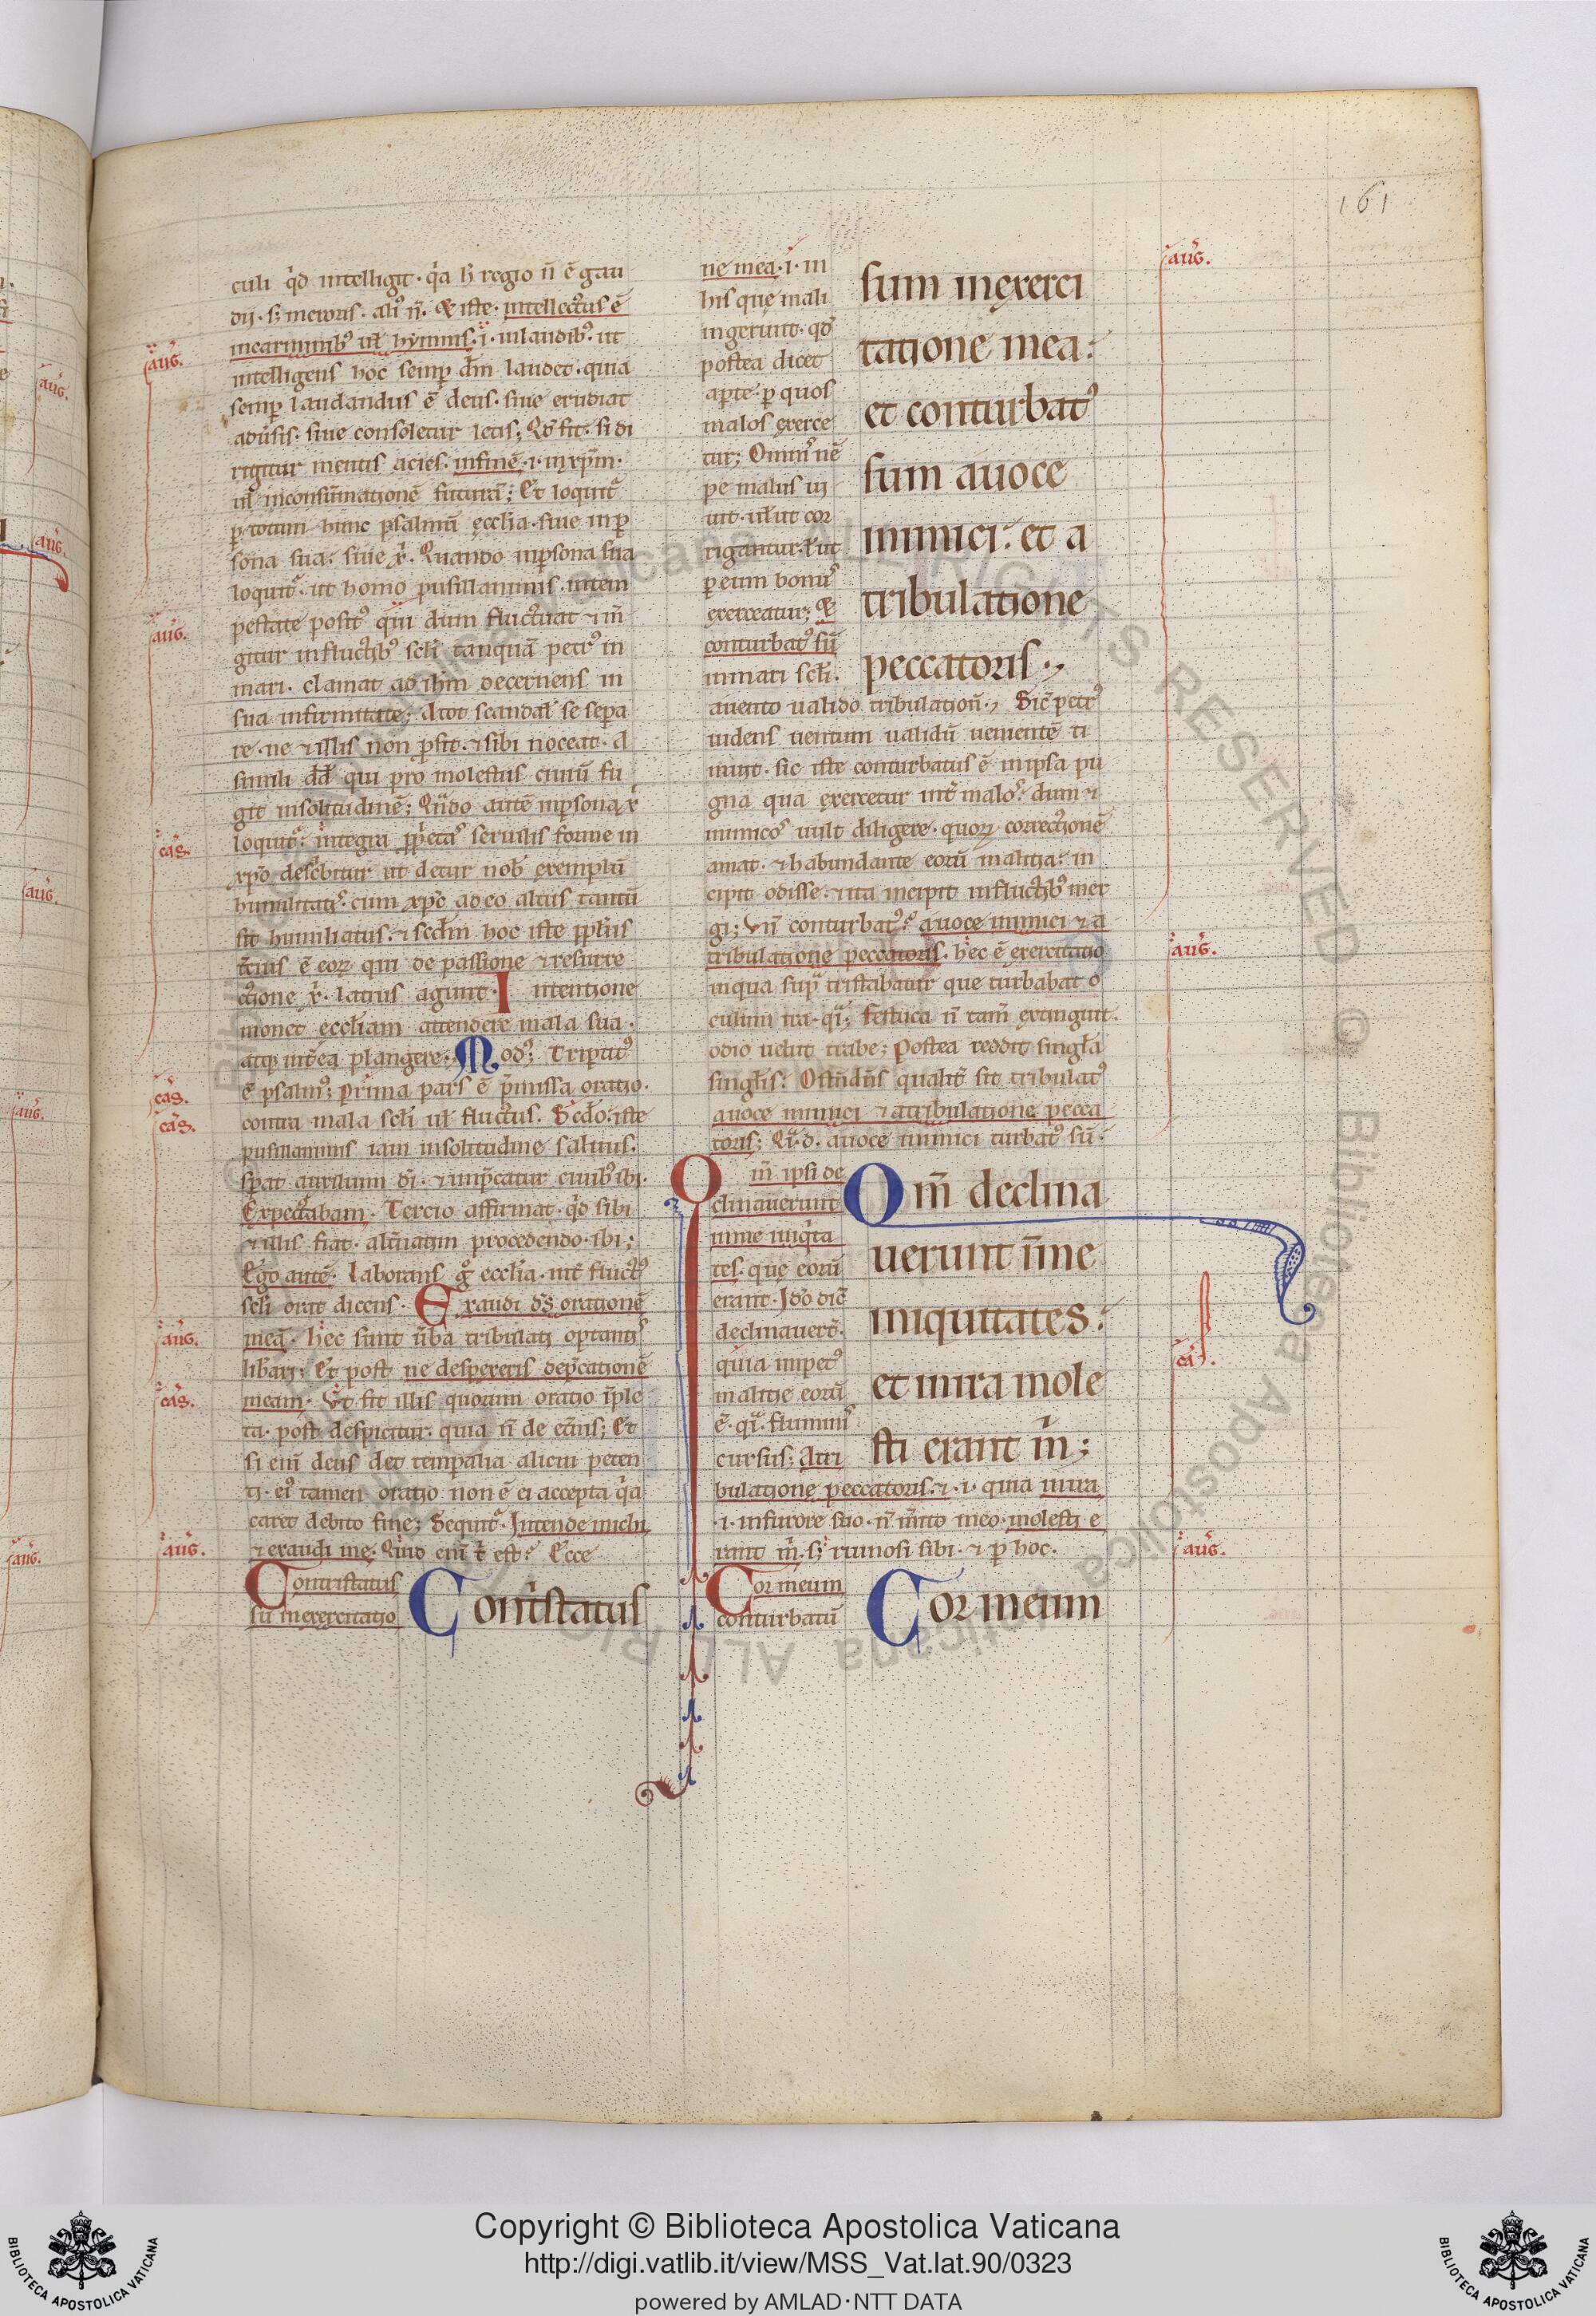 161
culi q'd intelligit · q'a h' regio n̄ ē gau
dii · s; meroris · ali' n̄ · & iste · intellectus ē
in carminib' ul' hymnis · i · in laudib' · ut
intelligens hoc semp̄ dm̄ laudet · quia
semp̄ laudandus ē deus · siue erudiat
adūsis · siue consoletur letis ; Qd' fit · si di
rigitur mentis acies · in finē · i · in xp̄m ·
ul' in consūmationē futurā ; Et loquit'
p̱ totum hunc psalmū ęccl'ia · siue in p̱
sona sua · siue x̄ · Quando in p̱sona sua
loquit' · ut homo pusillanimis · in tem
pestate posit' · qui dum fluctuat ⁊ m̄
gitur in fluctib' scl'i tanquā petr' in
mari · clamat ad ih̄m decernens in
sua infirmitate ; A tot scandal' se sepa
re · ne ⁊ illis non p̱sit · ⁊ sibi noceat · A
simili dd̄ qui pro molestiis ciuiū fu
git in solitudinē ; Qn̄do autē in p̱sona x̄
loquit' · integra p̱p̱'etas seruilis forme in
xp̄o desc'bitur ut detur nob' exemplū
humilitatis · cum xp̄c adeo altus tantū
sit humiliatus · ⁊ scd'm hoc iste ps̄l'us
t'cius ē eoꝝ qui de passione ⁊ resurre
ctione x̄ · latius agunt · Intentione
monet ęccl'iam attendere mala sua ·
atq; int'ea plangere ; Mod' ; Tripartit'
ē psalm' ; Prima pars ē p̱missa oratio ·
contra mala scl'i ul' fluctus · Sc'do · iste
pusillanimis iam in solitudine saluus ·
sp̱at auxilium d'i · ⁊ imp̱catur ciuib' ibi ·
Expectabam · Tercio affirmat · q'd sibi
⁊ illis fiat · alt'natim procedendo · ibi ;
Ego autē · Laborans g° eccl'ia · int' fluct'
scl'i orat dicens · Exaudi d's orationē
meā · Hec sunt ūba tribulati optantis
lib'ari ; Et post ne despexeris dep̱cationē
meam · Vt fit illis quorum oratio īple
ta · post despicitur · quia n̄ de et'nis ; Et
si eni' deus det temporalia alicui peten
ti · ei' tamen oratio non ē ei accepta q'a
caret debito fine ; Sequit' · Intende michi
⁊ exaudi me · Qn̄do eni' t' est ? Ecce
Contristatus
sū in exercitatio
Cont'status
ne mea · i · in
his quę mali
ingerunt · qd'
postea dicet
ap̱te · p̱ quos
malos exerce
tur ; Omnis nē
pe malus ui
uit · ul' ut cor
rigantur · l' ut
p̱ eum bonus
exerceatur ; &
conturbat' sū
in mari scl'i ·
sum inexerci
tatione mea :
et conturbat'
sum auoce
inimici : et a
tribulatione
peccatoris ·,
a uento ualido tribulationis ·, Sic petr'
uidens uentum ualidū uenientē ti
muit · sic iste conturbatus ē in ipsa pu
gna qua exercetur int' malos · dum ⁊
inimicos uult diligere · quoꝝ correctionē
amat · ⁊ habundante eorū malitia : in
cipit odisse · ⁊ ita incipit in fluctib' mer
gi ; Vn̄ conturbat' ? a uoce inimici ⁊ a
tribulatione peccatoris · hec ē exercitatio
in qua sup̱ tristabatur que turbabat o
culum ira · q' · festuca n̄ tam̄ extinguit ·
odio uelut trabe ; Postea reddit singl'a
singl'is · Ostēdēs qualit' sit tribulat'
a uoce inimici ⁊ a tribulatione pecca
toris ; Q' · d · a uoce inimici turbat' sū ·
Om̄ ipsi de
clinauerunt
in me iniq'ta
tes · que eorū
erant · Ido dic̄
declinauert̄ ·
quia impet'
malitie eorū
ē · q' · fluminis
cursus ; A tri
Om̄ declina
uerunt īme
iniquitates :
et in ira mole
sti erant m̄ ;
bulatione peccatoris · ⁊ · i · quia in ira
· i · in furore suo · n̄ m̄ito meo · molesti e
rant m̄ · s; ruinosi sibi · ⁊ p̱ hoc ·
Cor meum
conturbatū
Cor meum
aug̃.
aug̃.
cas̃.
cas̃.
cas̃.
aug̃.
cas̃.
aug̃.
aug̃.
aug̃.
ca.
aug̃.
Copyright © Biblioteca Apostolica Vaticana
http://digi.vatlib.it/view/MSS_Vat.lat.90/0323
powered by AMLAD·NTT DATA
BIBLIOTECA APOSTOLICA VATICANA
BIBLIOTECA APOSTOLICA VATICANA